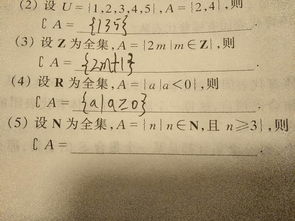 (2) 设 U={1,2,3,4,5},A={2,4},则
∁A= {135} .
(3) 设 Z 为全集,A={2m|m∈Z},则
∁A= {2m+1} .
(4) 设 R 为全集,A={a|a<0},则
∁A= {a|a≥0} .
(5) 设 N 为全集,A={n|n∈N,且 n≥3},则
∁A= .